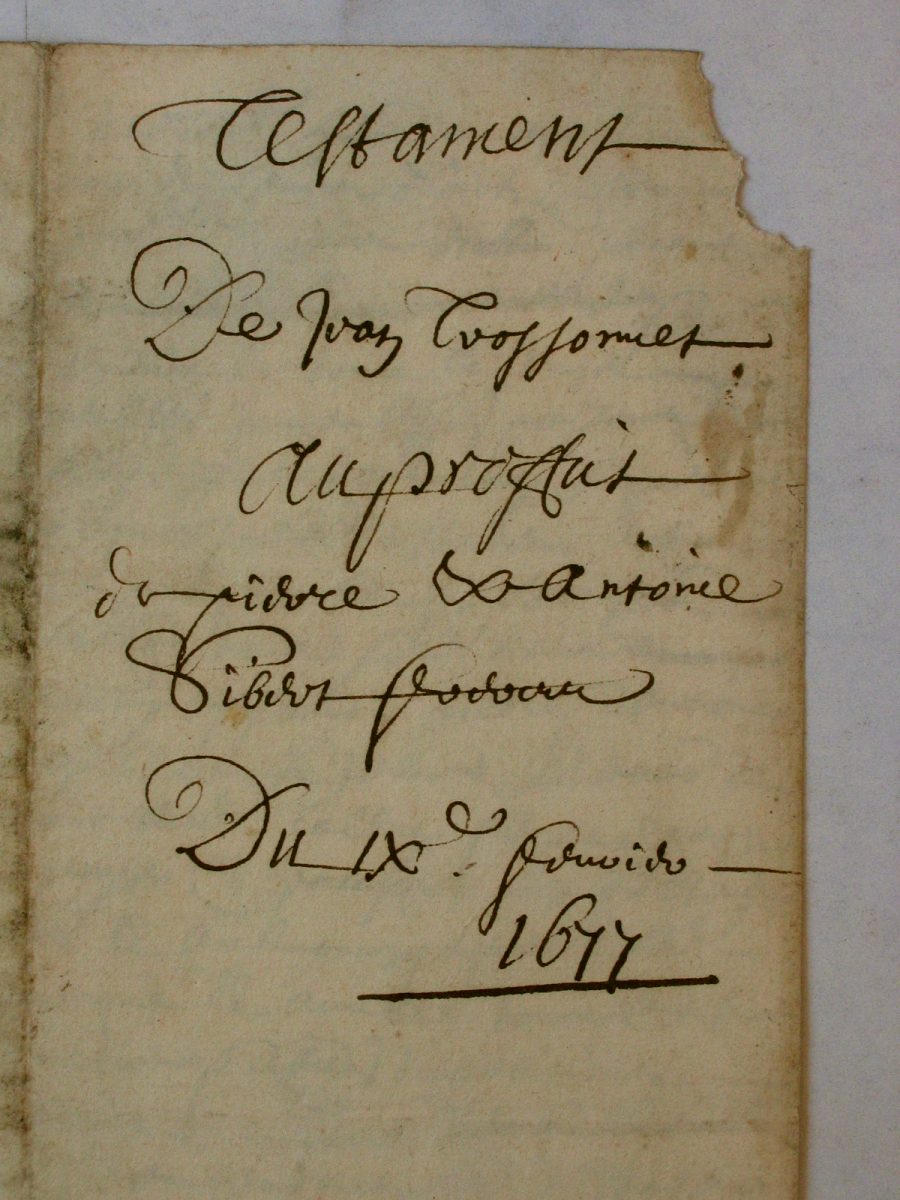 Testament
De Jean Trossonnet
Au proffit
de pierre & Antoine
Sibert freres
Du IXe. febvrier
1677